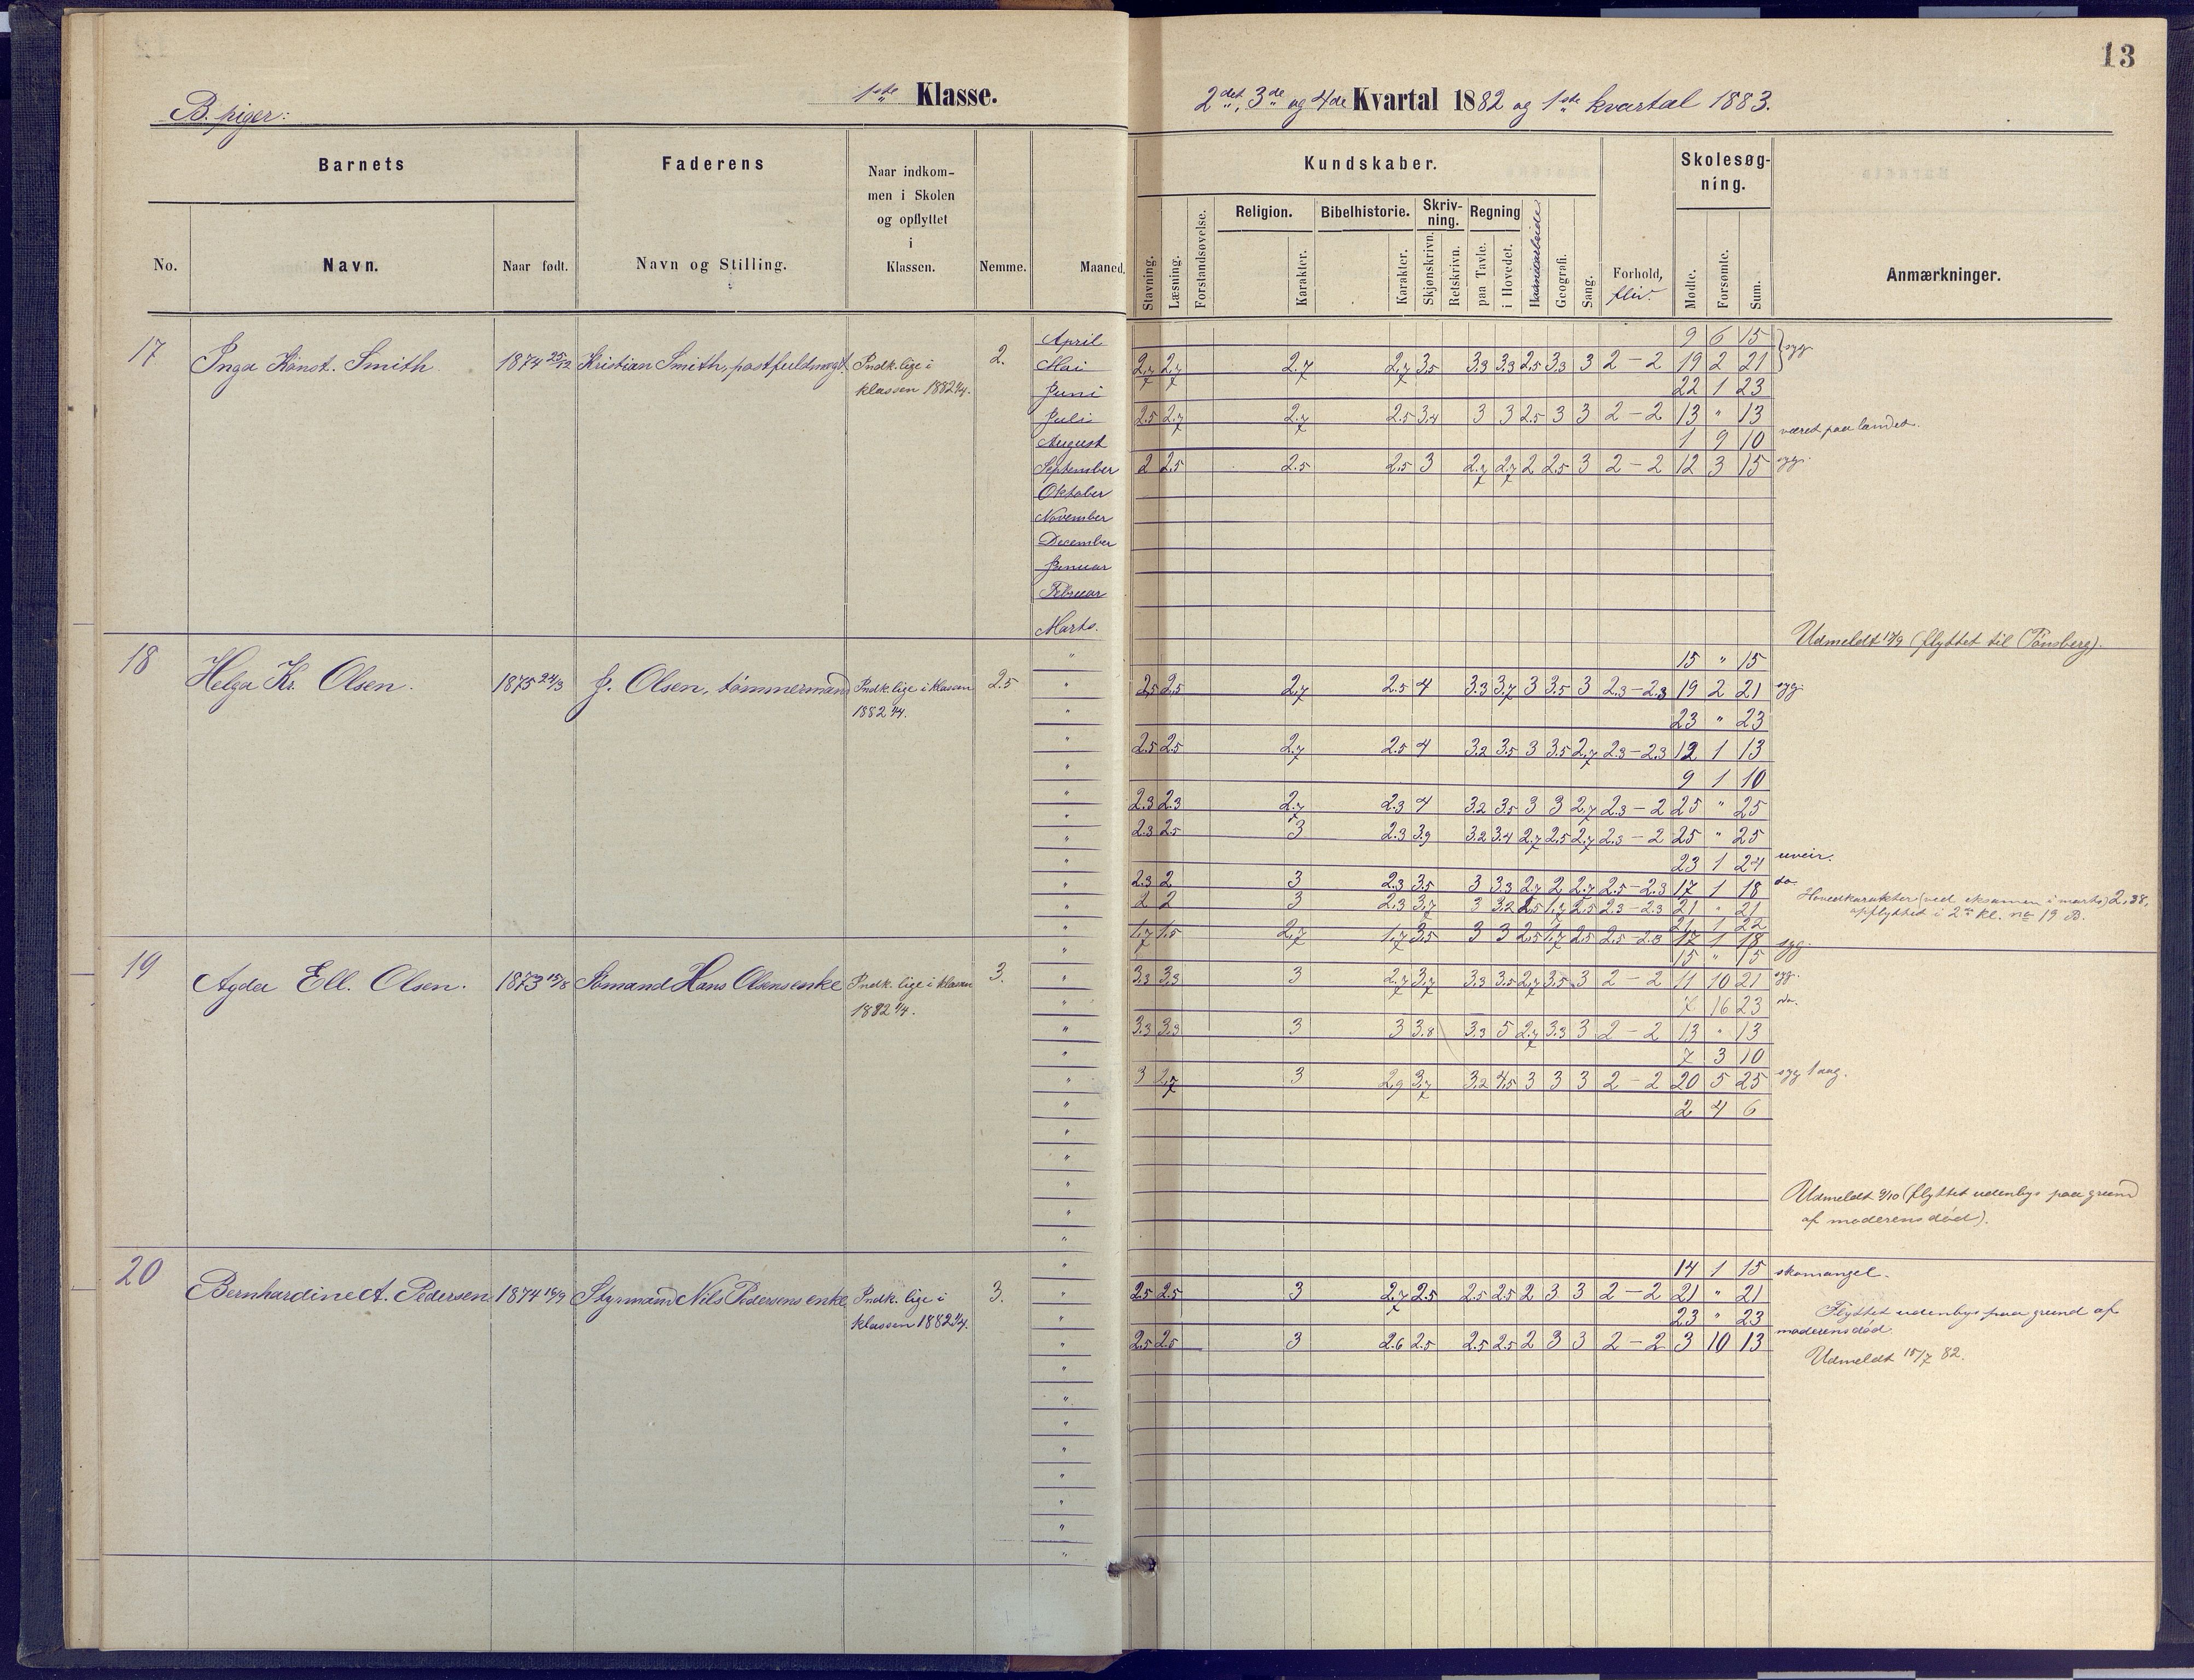 13
B. piger:
1ste Klasse.
2det, 3de og 4de Kvartal 1882 og 1ste kvartal 1883.
Barnets
Faderens
Naar indkom-
men i Skolen
og opflyttet
i
Klassen.
No.
Navn.
Naar født.
Navn og Stilling.
Nemme.
Maaned.
Kundskaber.
Skolesøg-
ning.
Religion.
Bibelhistorie.
Skriv-
ning.
Regning
Stavning.
Læsning.
Forstandsøvelse.
Karakter.
Karakter.
Skjønskrivn.
Retskrivn.
paa Tavle.
i Hovedet.
Haandarbeide
Geografi.
Sang.
Forhold,
flid.
Mødte.
Forsømte.
Sum.
Anmærkninger.
17 Inga Konst. Smith 1874 25/12 Kristian Smith, postfuldmægt. Indk. lige i
klassen 1882 1/4. 2.
April 9 6 15 syg.
Mai 2,7 2,7 2.7 2,7 3.5 3.3 3.3 2.5 3.3 3 2 – 2 19 2 21
Juni 22 1 23
Juli 2.5 2,7 2,7 2.5 3.4 3 3 2.5 3 3 2 – 2 13 " 13
August 1 9 10 været paa landet.
September 2 2.5 2.5 2.5 3 2,7 2,7 2 2.5 3 2 – 2 12 3 15 syg.
Oktober
November
December
Januar
Februar
Marts. Udmeldt 19/9 (flyttet til Tönsberg).
18 Helga Kr. Olsen. 1875 24/3 J. Olsen, tömmermand Indk. lige i klassen
1882 1/4. 2.5
" 15 " 15
" 2.5 2.5 2,7 2.5 4 3.3 3,7 3 3.5 3 2.3 – 2.3 19 2 21 syg.
" 23 " 23
" 2.5 2.5 2,7 2.5 4 3.2 3.5 3 3.5 2,7 2.3 – 2.3 12 1 13
" 9 1 10
" 2.3 2.3 2,7 2.3 4 3.2 3.5 3 3 2,7 2.3 – 2 25 " 25
" 2.3 2.5 3 2.3 3.9 3.2 3.4 2,7 2.5 2,7 2.3 – 2 25 " 25
" 23 1 24 uveir.
" 2.3 2 3 2.3 3.5 3 3.3 2,7 2 2,7 2.5 – 2.3 17 1 18 do.
" 2 2 3 2.3 3,7 3 3.2 2.5 1,7 2.5 2.3 – 2.3 21 " 21 Hovedkarakter (ved eksamen i marts) 2.38,
opflyttet i 2de kl. no 19 B.
" 21 1 22
" 1,7 1.5 2,7 1,7 3.5 3 3 2.5 1,7 2.5 2.5 – 2.3 17 1 18 syg.
19 Agda Ell. Olsen. 1873 15/8 Sömand Hans Olsens enke Indk. lige i klassen
1882 1/4. 3.
15 " 15
" 3.3 3.3 3 2,7 3,7 3.3 3.5 2,7 3.5 3 2 – 2 11 10 21 syg.
" 7 16 23 do.
" 3.3 3.3 3 3 3.8 3.3 5 2,7 3.3 3 2 – 2 13 " 13
" 7 3 10
" 3 2,7 3 2,9 3,7 3.2 4.5 3 3 3 2 – 2 20 5 25 syg 1 aag.
" 2 4 6
"
"
" Udmeldt 9/10 (flyttet udenbys paa grund
" af moderens död).
"
20 Bernhardine A. Pedersen 1874 16/9 Styrmand Nils Pedersens enke Indk. lige i
klassen 1882 1/4. 3.
" 14 1 15 skomangel.
" 2.5 2.5 3 2,7 2.5 2.5 2.5 2 3 3 2 – 2 21 " 21
" 23 " 23 Flyttet udenbys paa grund af
moderens död.
" 2.5 2.5 3 2.6 2.5 2.5 2.5 2 3 3 2 – 2 3 10 13
Udmeldt 15/7 82.
"
"
"
"
"
"
"
"